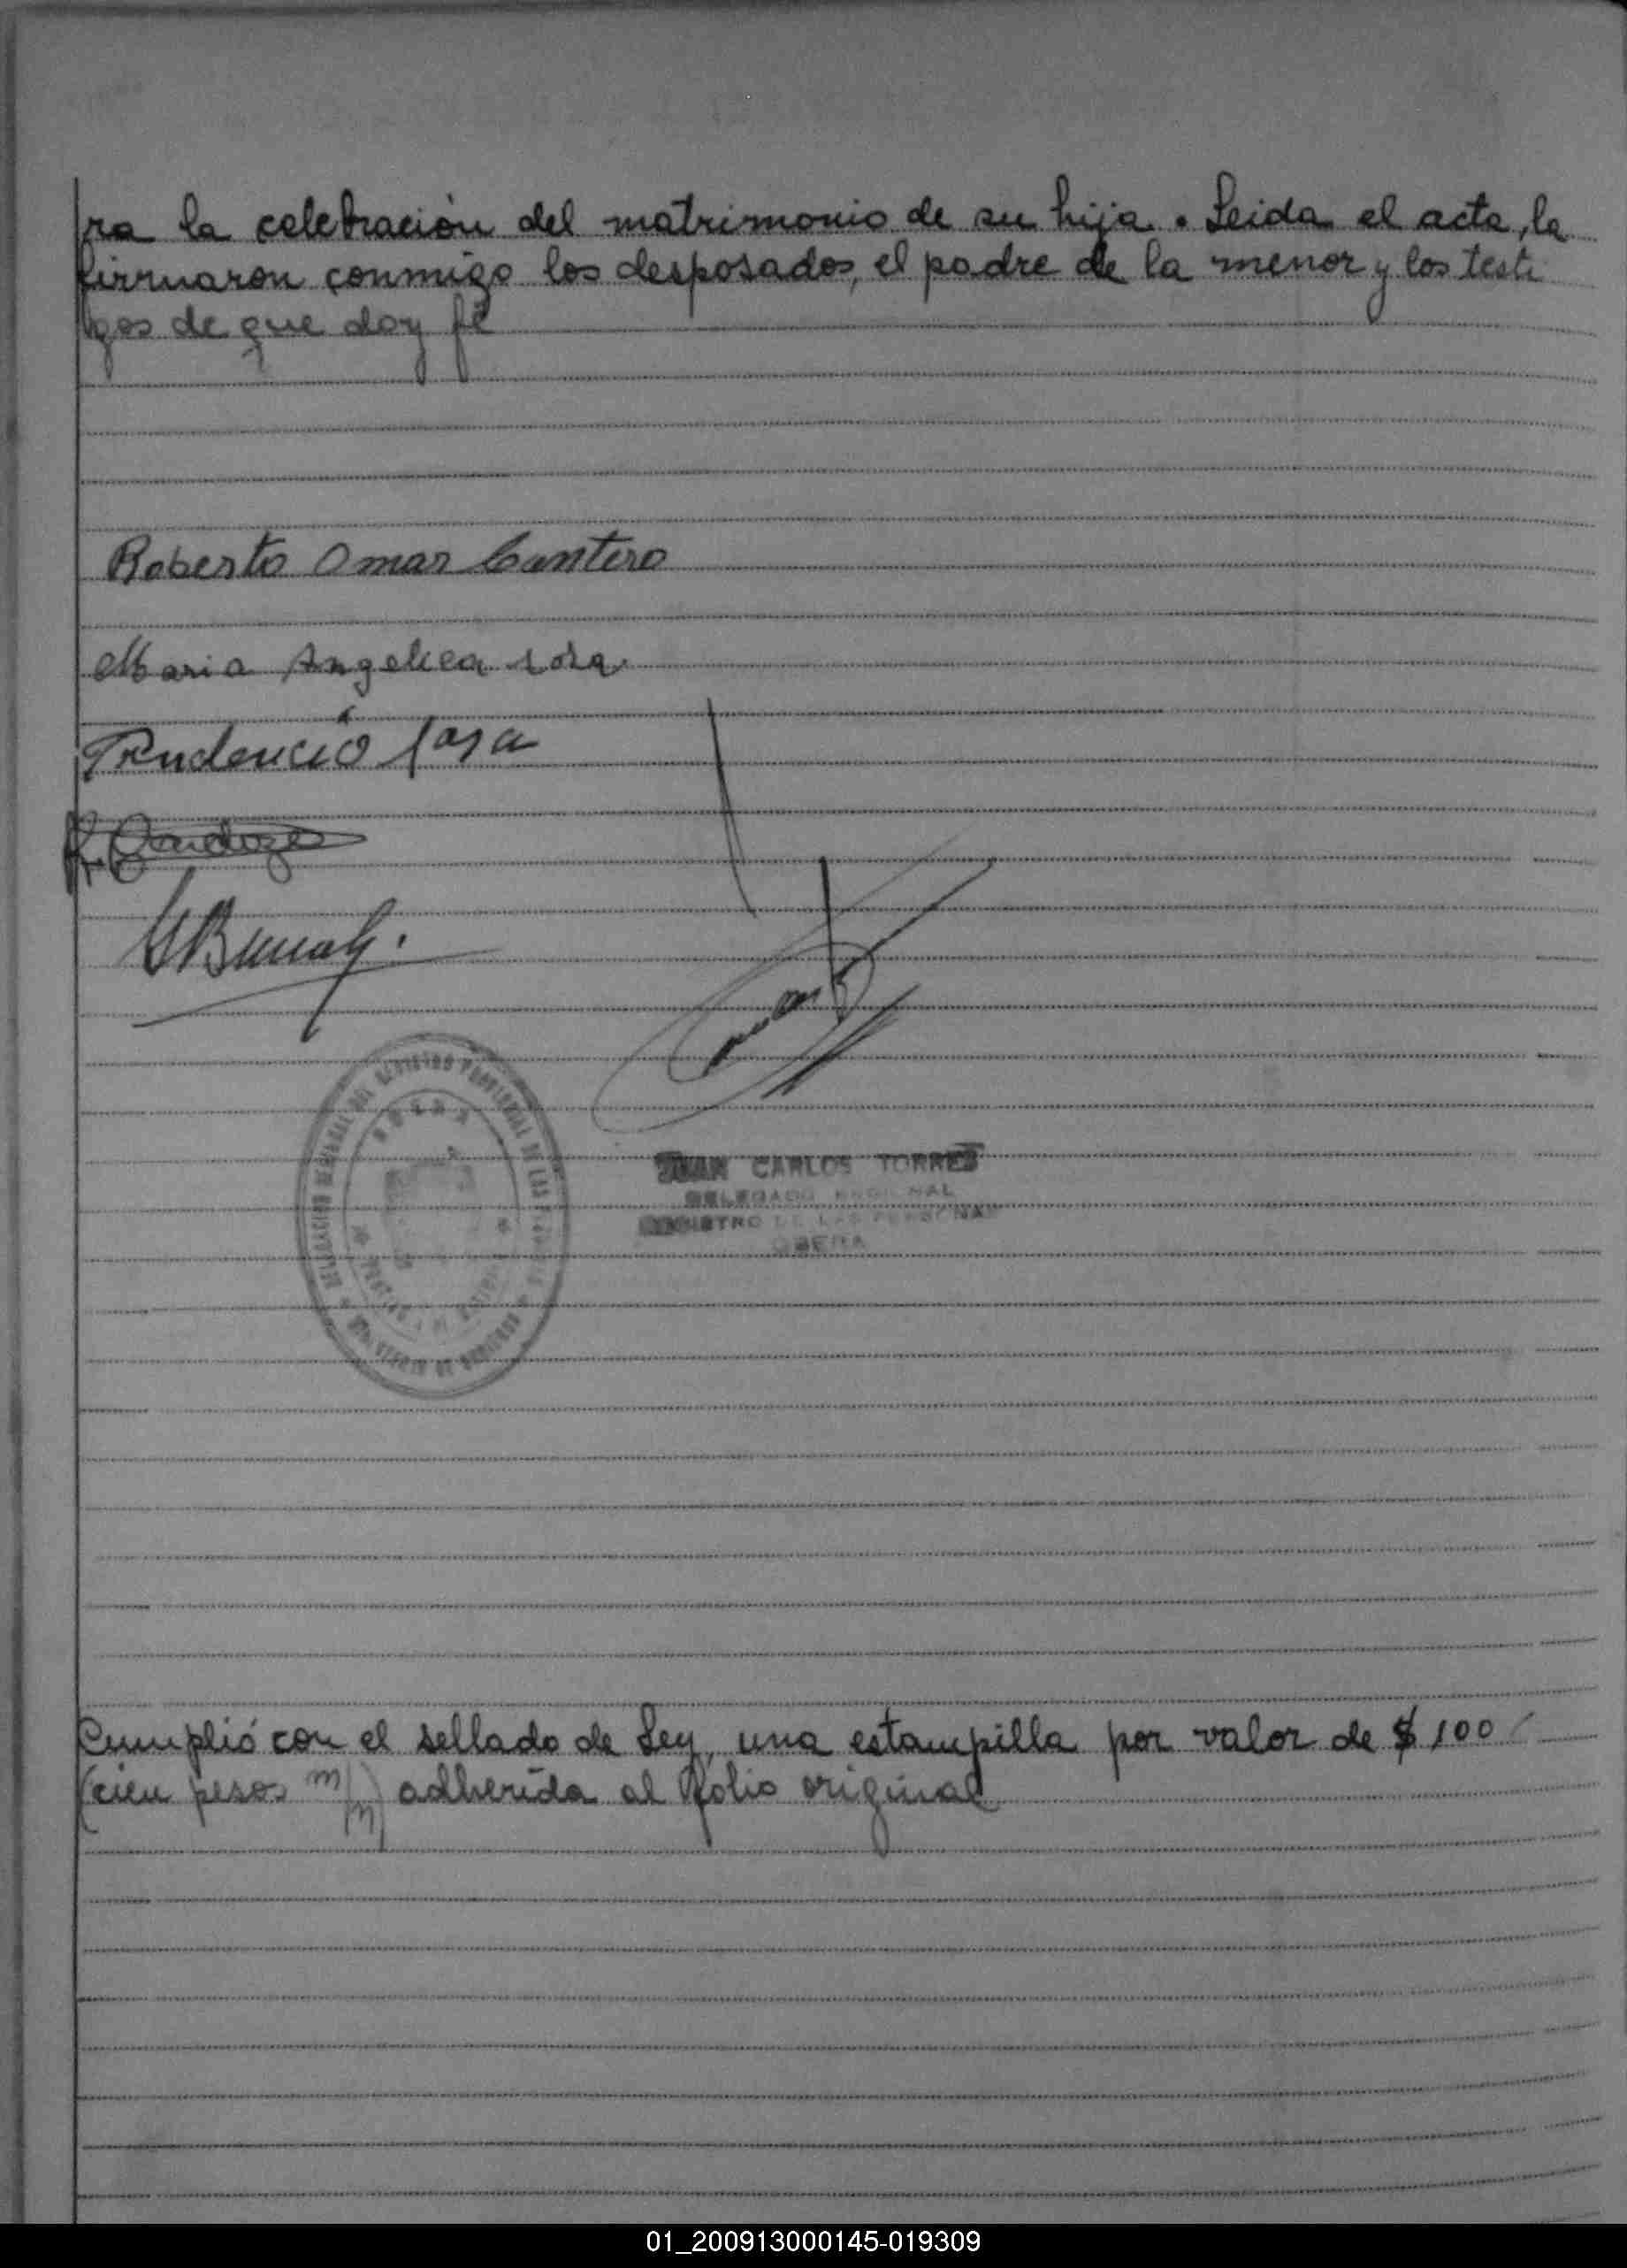 ra la celebración del matrimonio de su hija. Leida el acta, la
firmaron conmigo los desposados, el padre de la menor y los testi
gos de que doy fé
Roberto Omar Cantero
Maria Angelica
Prudencio
JUAN CARLOS TORRES
DELEGADO REGIONAL
REGISTRO DE LAS PERSONAS
OBERA
Cumplió con el sellado de Ley, una estampilla por valor de $ 100
(cien pesos m/n) adherida al folio original
01_200913000145-019309